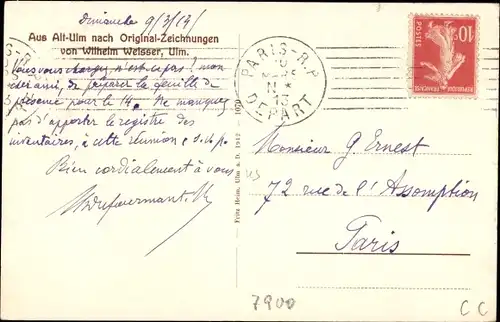 Dimanche 9/3/13/
Aus Alt-Ulm nach Original-Zeichnungen
von Wilhelm Weisser, Ulm.
Vous vous chargez n'est-ce pas ? mon
cher ami, de préparer la feuille de
présence pour le 14. Ne manquez
pas d'apporter le registre des
inventaires, à cette réunion s.v.p.
Bien cordialement à vous
Fritz Heim, Ulm a. D. 1912
PARIS - R.P.
DEPART
10c
POSTES
REPUBLIQUE FRANCAISE
Monsieur G Ernest
72 rue de l'Assomption
Paris
7900
C C